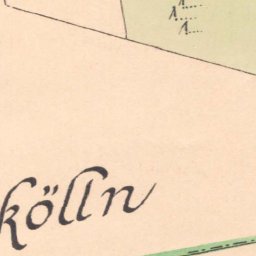 kölln